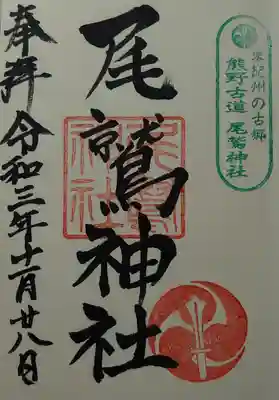 東紀州の古郷
熊野古道 尾鷲神社
尾鷲神社
奉拝 令和三年十一月廿八日
尾鷲神社